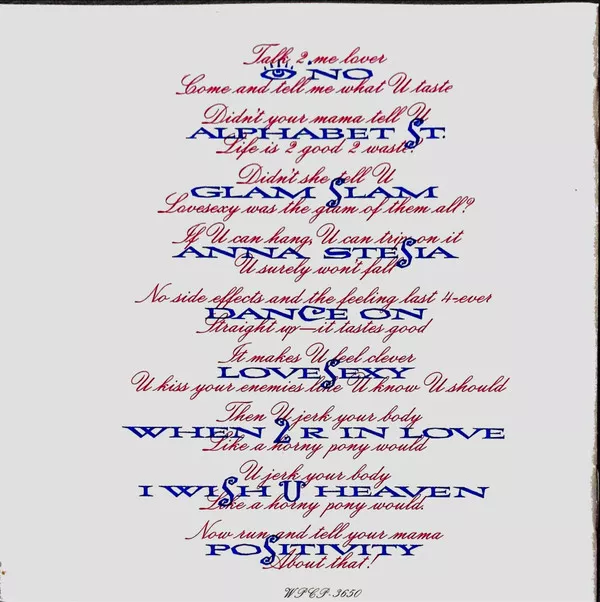 Talk 2 me lover
NO
Come and tell me what U taste
Didn't your mama tell U
ALPHABET St.
Life is 2 good 2 waste!
Didn't she tell U
GLAM SLAM
Lovesexy was the glam of them all?
If U can hang, U can trip on it
ANNA STESIA
U surely won't fall
No side effects and the feeling last 4-ever
DANCE ON
Straight up—it tastes good
It makes U feel clever
LOVESEXY
U kiss your enemies like U know U should
Then U jerk your body
WHEN 2 R IN LOVE
Like a horny pony would
U jerk your body
I WISH U HEAVEN
Like a horny pony would.
Now run and tell your mama
POSITIVITY
About that!
WPCP-3650